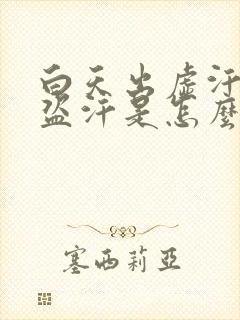 白天出虛汗
盜汗是怎麼
塞西莉亞